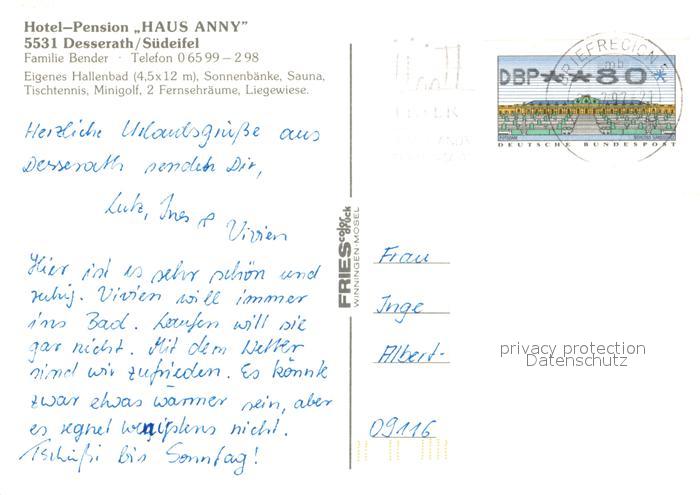 Hotel–Pension „HAUS ANNY”
5531 Desserath/Südeifel
Familie Bender · Telefon 0 65 99 – 2 98
Eigenes Hallenbad (4,5 x 12 m), Sonnenbänke, Sauna,
Tischtennis, Minigolf, 2 Fernsehräume, Liegewiese.
Herzliche Urlaubsgrüße aus
Desserath senden Dir,
Lutz, Ines &
Vivien
Hier ist es sehr schön und
ruhig. Vivien will immer
ins Bad. Laufen will sie
gar nicht. Mit dem Wetter
sind wir zufrieden. Es könnte
zwar etwas wärmer sein, aber
es regnet wenigstens nicht.
Tschüßi bis Sonntag!
FRIES color druck
WINNINGEN-MOSEL
BRIEFREGION
mb
DBP **80*
DEUTSCHE BUNDESPOST
Frau
Inge
Albert-
privacy protection
Datenschutz
09116